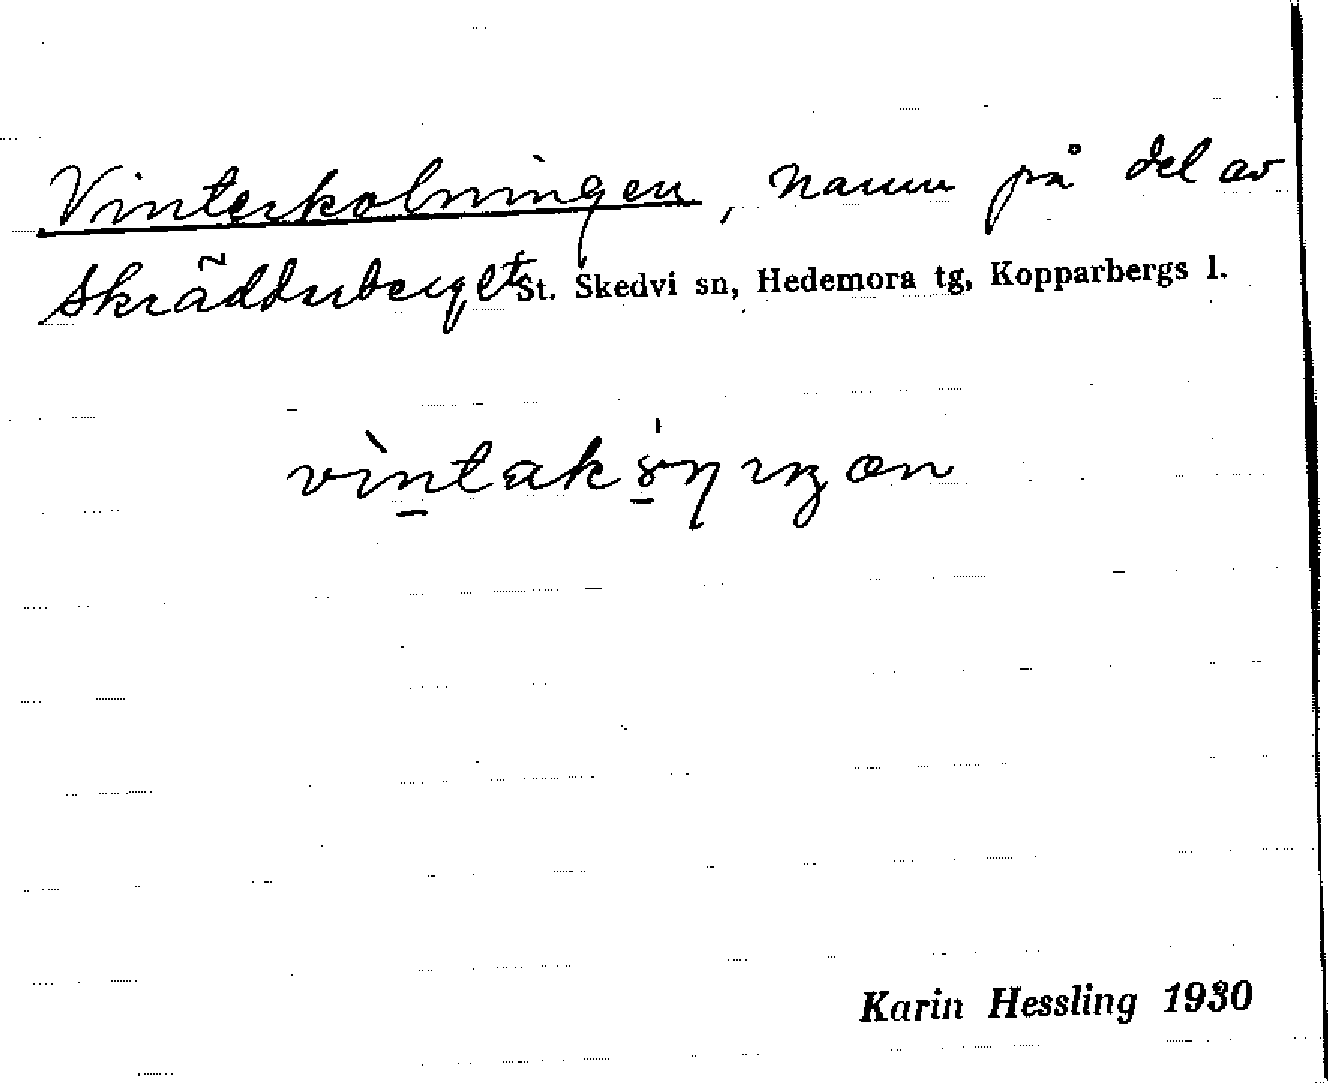 Vinterkolningen, namn på del av
Skräddarberget St. Skedvi sn, Hedemora tg, Kopparbergs l.
Karin Hessling 1930